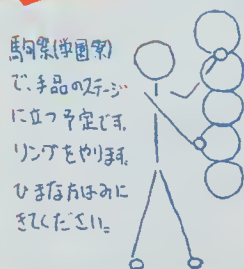 駒祭(学園祭)
で、手品のステージ
に立つ予定です。
リングをやります。
ひまな方はみに
きてください。